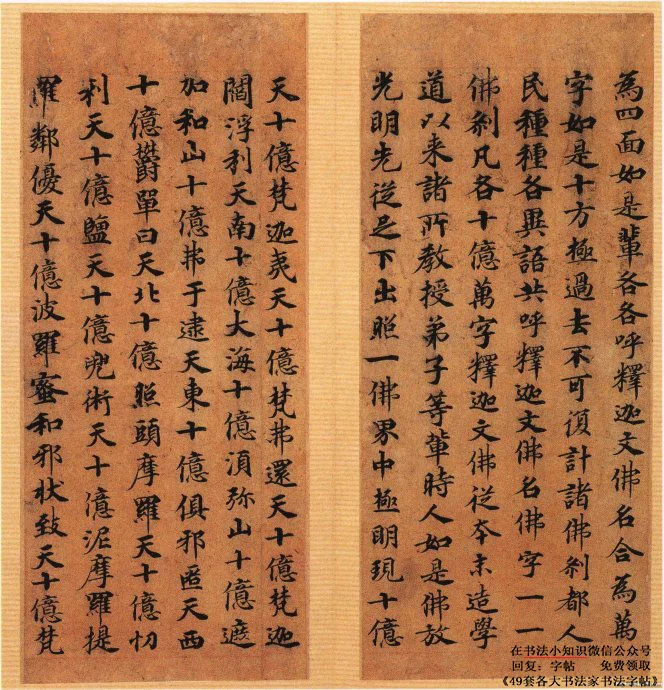 為四面如是輩各各呼釋迦文佛名合為萬
字如是十方極過去不可復計諸佛刹都人
民種種各異語共呼釋迦文佛名佛字一一
佛刹凡各十億萬字釋迦文佛從本末造學
道以来諸所教授弟子等輩時人如是佛放
光明先從足下出照一佛界中極明現十億
天十億梵迦夷天十億梵弗還天十億梵迦
閻浮利天南十億大海十億須弥山十億遮
加和山十億弗于逮天東十億俱邪匿天西
十億欝單曰天北十億照頭摩羅天十億忉
利天十億鹽天十億兜術天十億泥摩羅提
羅鄰優天十億波羅蜜和邪狀致天十億梵
在书法小知识微信公众号
回复：字帖 免费领取
《49套各大书法家书法字帖》